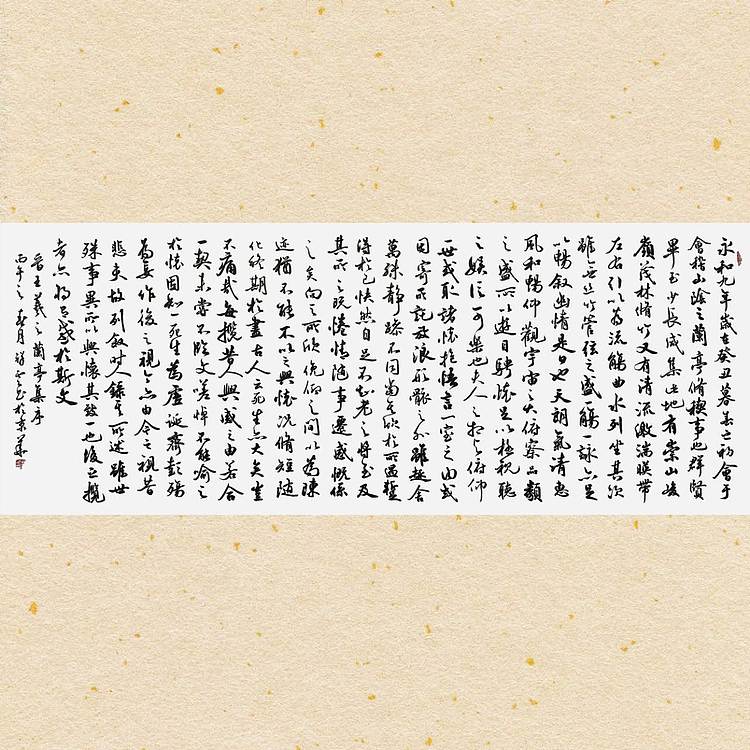 永和九年歲在癸丑暮春之初會于
會稽山陰之蘭亭脩稧事也群賢
畢至少長咸集此地有崇山峻
嶺茂林脩竹又有清流激湍暎帶
左右引以為流觴曲水列坐其次
雖無絲竹管弦之盛觴一詠亦足
以暢敘幽情是日也天朗氣清惠
風和暢仰觀宇宙之大俯察品類
之盛所以遊目騁懷足以極視聽
之娛信可樂也夫人之相與俯仰
一世或取諸懷抱悟言一室之內或
因寄所託放浪形骸之外雖趣舍
萬殊靜躁不同當其欣於所遇蹔
得於己快然自足不知老之將至及
其所之既惓情隨事遷感慨係
之矣向之所欣俛仰之間以為陳
迹猶不能不以之興懷況脩短隨
化終期於盡古人云死生亦大矣豈
不痛哉每攬昔人興感之由若合
一契未嘗不臨文嗟悼不能喻之
於懷固知一死生為虛誕齊彭殤
為妄作後之視今亦由今之視昔
悲夫故列敘時人錄其所述雖世
殊事異所以興懷其致一也後之攬
者亦將有感於斯文
晉王羲之蘭亭集序
丙午之春月於京華